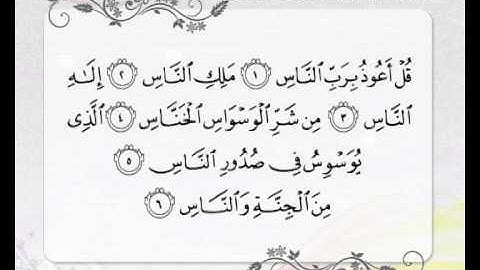 قُلْ أَعُوذُ بِرَبِّ ٱلنَّاسِ ١ مَلِكِ ٱلنَّاسِ ٢ إِلَٰهِ
ٱلنَّاسِ ٣ مِن شَرِّ ٱلْوَسْوَاسِ ٱلْخَنَّاسِ ٤ ٱلَّذِى
يُوَسْوِسُ فِى صُدُورِ ٱلنَّاسِ ٥
مِنَ ٱلْجِنَّةِ وَٱلنَّاسِ ٦